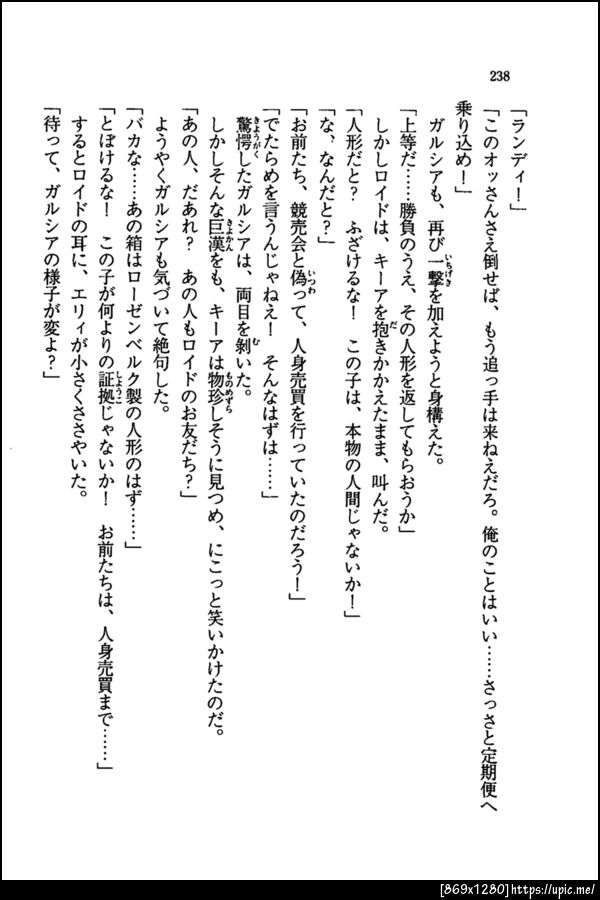 238
「ランディ！」
「このオッさんさえ倒せば、もう追っ手は来ねえだろ。俺のことはいい……さっさと定期便へ
乗り込め！」
ガルシアも、再び一撃を加えようと身構えた。
「上等だ……勝負のうえ、その人形を返してもらおうか」
しかしロイドは、キーアを抱きかかえたまま、叫んだ。
「人形だと？　ふざけるな！　この子は、本物の人間じゃないか！」
「な、なんだと？」
「お前たち、競売会と偽って、人身売買を行っていたのだろう！」
「でたらめを言うんじゃねえ！　そんなはずは……」
驚愕したガルシアは、両目を剝いた。
しかしそんな巨漢をも、キーアは物珍しそうに見つめ、にこっと笑いかけたのだ。
「あの人、だあれ？　あの人もロイドのお友だち？」
ようやくガルシアも気づいて絶句した。
「バカな……あの箱はローゼンベルク製の人形のはず……」
「とぼけるな！　この子が何よりの証拠じゃないか！　お前たちは、人身売買まで……」
するとロイドの耳に、エリィが小さくささやいた。
「待って、ガルシアの様子が変よ？」
[869x1280]https://upic.me/